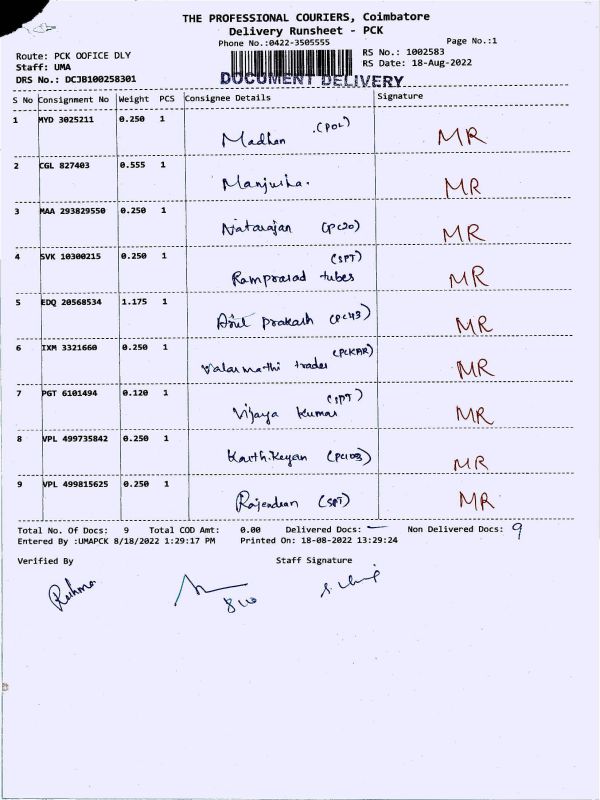 THE PROFESSIONAL COURIERS, Coimbatore
Delivery Runsheet - PCK
Phone No.:0422-3505555 Page No.:1
Route: PCK OOFICE DLY RS No.: 1002583
Staff: UMA RS Date: 18-Aug-2022
DRS No.: DCJB100258301 DOCUMENT DELIVERY
S No Consignment No Weight PCS Consignee Details Signature
1 MYD 3025211 0.250 1 Madhan (POL) MR
2 CGL 827403 0.555 1 Manjusha. MR
3 MAA 293829550 0.250 1 Natarajan (PC20) MR
4 SVK 10300215 0.250 1 (SPT) MR
Ramprasad tubes
5 EDQ 20568534 1.175 1 prakash (PC43) MR
6 IXM 3321660 0.250 1 (PCKAR) MR
Valarmathi trades
7 PGT 6101494 0.120 1 (SPT) MR
Vijaya Kumar
8 VPL 499735842 0.250 1 Karthikeyan (PC103) MR
9 VPL 499815625 0.250 1 Rajendran (SPT) MR
Total No. Of Docs: 9 Total COD Amt: 0.00 Delivered Docs: — Non Delivered Docs: 9
Entered By :UMAPCK 8/18/2022 1:29:17 PM Printed On: 18-08-2022 13:29:24
Verified By Staff Signature